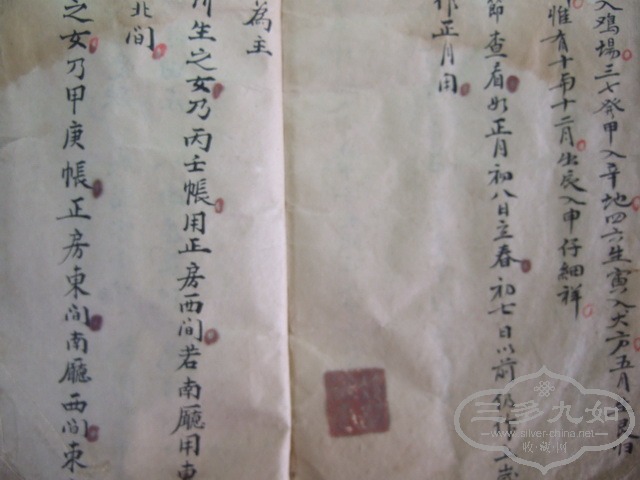 入鸡場三七癸甲入辛地四六生寅入犬方五月
惟有十与十二月生辰入申仔細祥
節查看如正月初八日立春初七日以前仍作
作正月用
為主
生之女乃丙壬帳用正房西间若南廳用東
北间
之女乃甲庚帳正房東间南廳西间東
三多九如
www.silver-china.net
收·藏·网